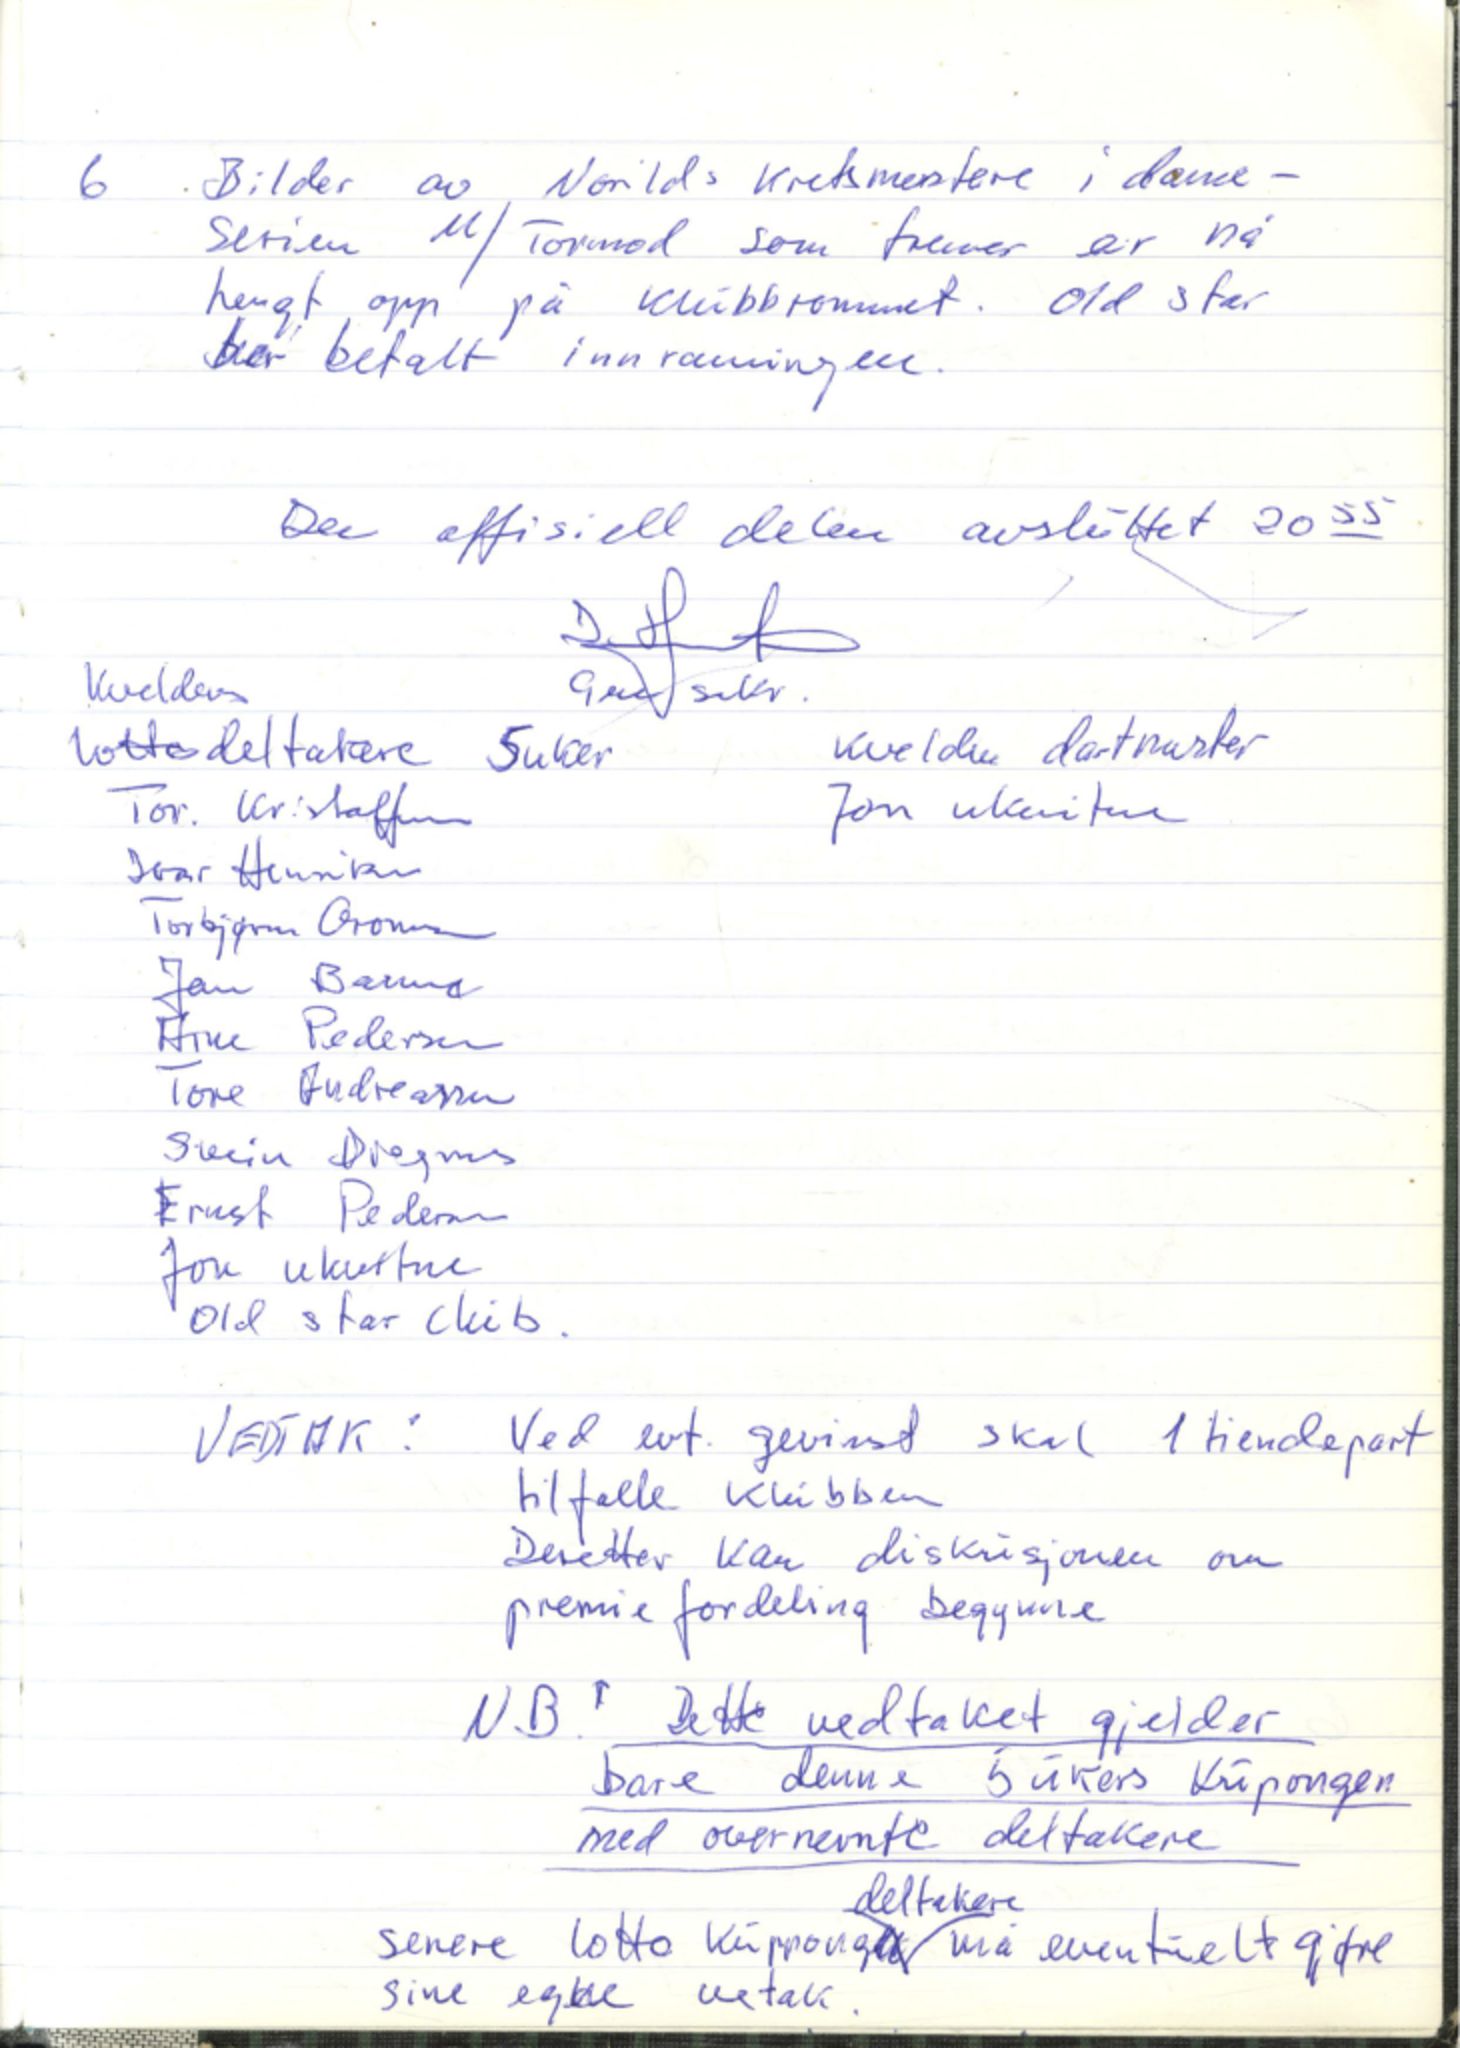 6 Bilder av Norilds Kretsmestere i dame-
Serien M/Tormod som trener er nå
hengt opp på klubbrommet. Old star
har betalt innramingen.
Den offisiell delen avsluttet 20 55
Gen sekr.
Kveldens
Lottodeltakere 5 uker
Kvelden dartmester
Tor. Kristoffersen
Jon ukvitne
Ivar Henriksen
Torbjørn
Jan
Arne Pedersen
Tore Andreassen
Svein
Ernst Pedersen
Jon ukvitne
Old star club.
VEDTAK: Ved evt. gevinst skal 1 tiendepart
tilfalle klubben
Deretter kan diskusjonen om
premie fordeling begynne
N.B.! Dette vedtaket gjelder
bare denne 5 ukers Kupongen
med overnevnte deltakere
deltakere
senere lotto kuppong må eventuelt gjøre
sine egne vetak.